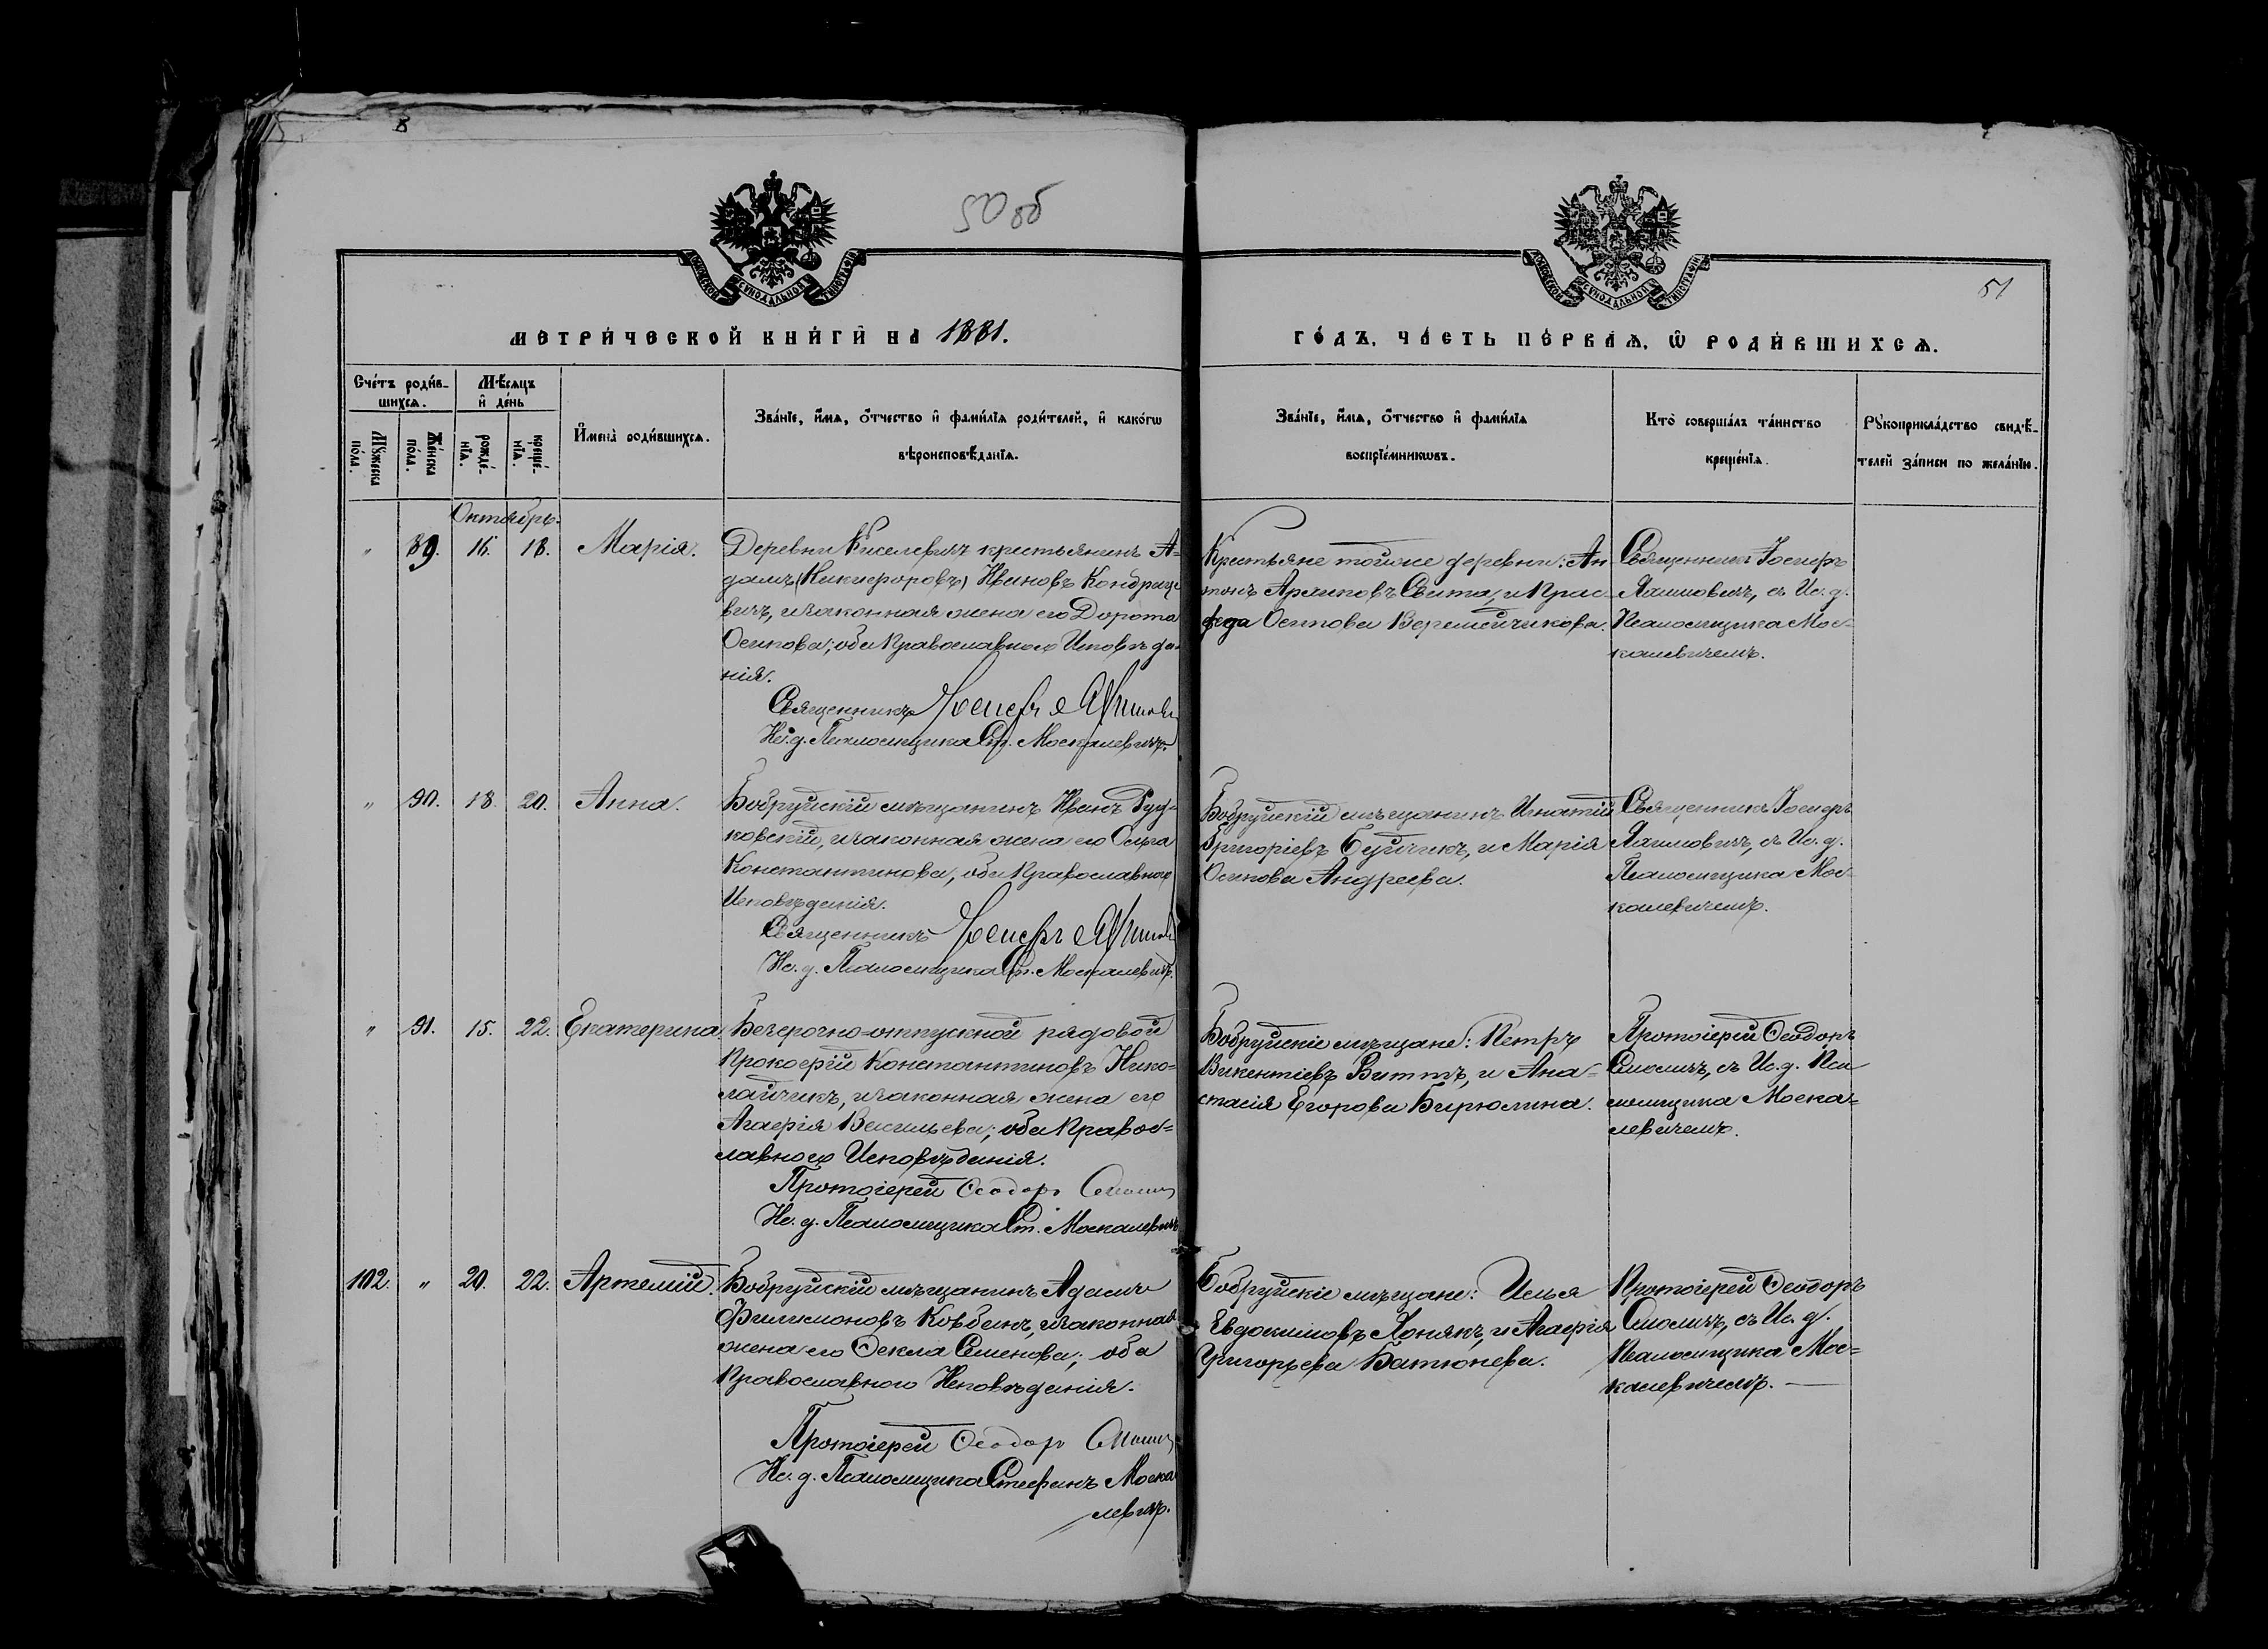 50 об
51
МОСКОВСКОЙ СѴНОДАЛЬНОЙ ТИПОГРАФІИ
МОСКОВСКОЙ СѴНОДАЛЬНОЙ ТИПОГРАФІИ
МЕТРИ́ЧЕСКОЙ КНИ́ГИ НА 1881.
ГО́ДЪ, ЧА́СТЬ ПЕ́РВАѦ, Ѽ РОДИ́ВШИХСѦ.
Сче́тъ роди́в-
шихсѧ.
Мꙋ́жеска по́ла.
Же́нска по́ла.
Мѣ́сѧцъ
и҆ де́нь
рожде́-
нїѧ.
креще́-
нїѧ.
И҆мена̀ роди́вшихсѧ.
Зва́нїе, и҆́мѧ, ѻ҆́тчество и҆ фами́лїѧ роди́телей, и҆ како́гѡ
вѣроисповѣ́данїѧ.
Зва́нїе, и҆́мѧ, ѻ҆́тчество и҆ фами́лїѧ
воспрїе́мникѡвъ.
Кто̀ соверша́лъ та́инство
креще́нїѧ.
Рꙋкоприкла́дство свидѣ́-
телей за́писи по жела́нїю.
Октябрь.
" 89. 16. 18. Марія.
Деревни Киселевичъ крестьянинъ А=
дамъ (Никифоровъ) Ивановъ Кондраце
вичъ, и законная жена его Дорота
Осипова; оба Православнаго Исповѣда-
нія.
Священникъ Іосифъ
Ис. д. Псаломщика Ст. Москалевичъ.
Крестьяне тойже деревни: Ан
тонъ Архиповъ Свита, и Прас-
Осипова Веремейчикова.
Священникъ Іосифъ
съ Ис. д.
Псаломщика Мос-
калевичемъ.
" 90. 18. 20. Анна.
Бобруйскій мѣщанинъ Иванъ Рут-
ковскій, и законная жена его
Константинова, оба Православнаго
Исповѣданія.
Священникъ Іосифъ
Ис. д. Псаломщика Ст. Москалевичъ.
Бобруйскій мѣщанинъ Игнатій
Григоріевъ и Марія
Осипова Андреева.
Священникъ Іосифъ
съ Ис. д.
Псаломщика Мос-
калевичемъ.
" 91. 15. 22. Екатерина.
Безсрочно-отпускной рядовой
Прокофій Константиновъ Нико=
лайчикъ, и законная жена его
Агафія Васильева; оба Правос=
лавнаго Исповѣданія.
Протоіерей Ѳеодоръ Смоличъ
Ис. д. Псаломщика Ст. Москалевичъ
Бобруйскіе мѣщане: Петръ
Викентіевъ Виттъ, и Ана=
стасія Егорова Бирюлина.
Протоіерей Ѳеодоръ
Смоличъ, съ Ис. д. Пса
ломщика Моска=
левичемъ.
102. " 20. 22. Артемій.
Бобруйскій мѣщанинъ Адамъ
Филимоновъ Ковбинъ, и законная
жена его Ѳекла Семенова; оба
Православнаго Исповѣданія.
Протоіерей Ѳеодоръ Смоличъ
Ис. д. Псаломщика Стефанъ Моска
левичъ.
Бобруйскіе мѣщане: Илья
Евдокимовъ Хонякъ, и Агафія
Григорьева Батюнева.
Протоіерей Ѳеодоръ
Смоличъ, съ Ис. д.
Псаломщика Мос=
калевичемъ.